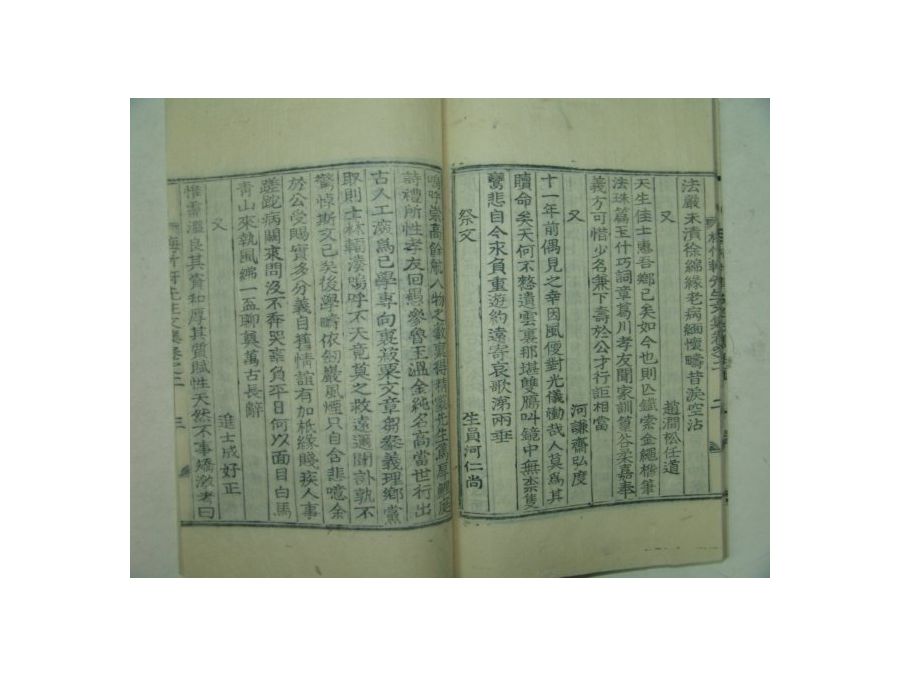 法嚴未漬徐綿緣老病緬懷疇昔淚空沾
又 趙澗松任道
天生佳士惠吾鄉已矣如今也則亡鐵索金繩楷筆
法珠篇玉什巧詞章葛川孝友聞家訓篔谷柔嘉奉
義方可惜少名兼下壽於公才行詎相當
又 河謙齋弘度
十一年前偶見之幸因風便對光儀慟哉人莫爲其
贖命矣天何不憗遺雲裏那堪雙鴈叫鏡中無柰隻
鸞悲自今來負重遊約遠寄哀歌涕兩垂
祭文 生員河仁尚
嗚呼崇高餘 人物之 先生
詩禮所性孝友回愚參魯玉溫金純名高當世行出
古人工 爲己學專向裏菽粟文章芻豢義理鄉黨
取則士林賴湊嗚呼不天竟莫之救遠邇聞訃孰不
驚悼斯文已矣後學疇依 巖風煙只自含悲噫余
於公受賜實多分義自舊情誼有加柢緣賤疾人事
蹉跎病闕來問沒不奔哭辜負平日何以面目白馬
靑山來執風紼一盃聊奠萬古長辭
又 進士成好正
惟靈溫良其資和厚其質賦性天然不事矯激孝曰
先生文集卷之二 二
先生文集卷之二 三